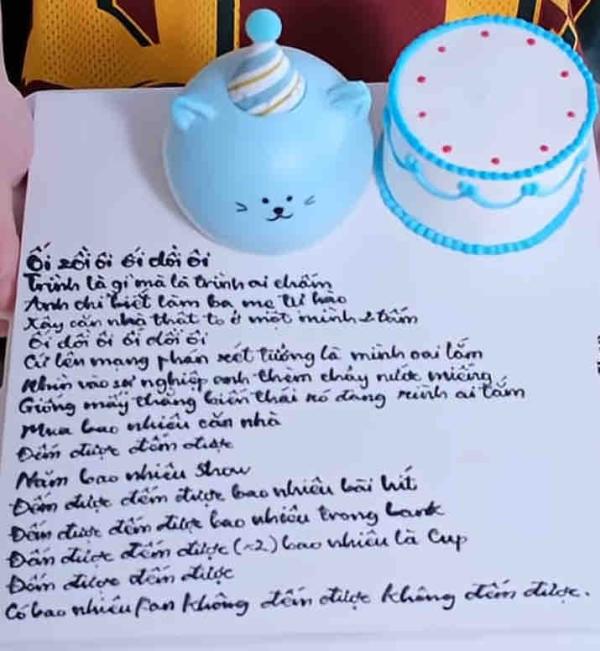 Ối zồi ôi ối dồi ôi
Trình là gì mà là trình ai chấm
Anh chỉ biết làm ba mẹ tự hào
Xây căn nhà thật to ở một mình 2 tấm
Ối dồi ôi ối dồi ôi
Cứ lên mạng phán xét tưởng là mình oai lắm
Nhìn vào sự nghiệp anh thèm chảy nước miếng
Giống mấy thằng biến thái nó đang rình ai tắm
Mua bao nhiêu căn nhà
Đếm được đếm được
Năm bao nhiêu show
Đếm được đếm được bao nhiêu bài hit
Đếm được đếm được bao nhiêu trong bank
Đếm được đếm được (x2) bao nhiêu là Cup
Đếm được đếm được
Có bao nhiêu Fan không đếm được không đếm được.